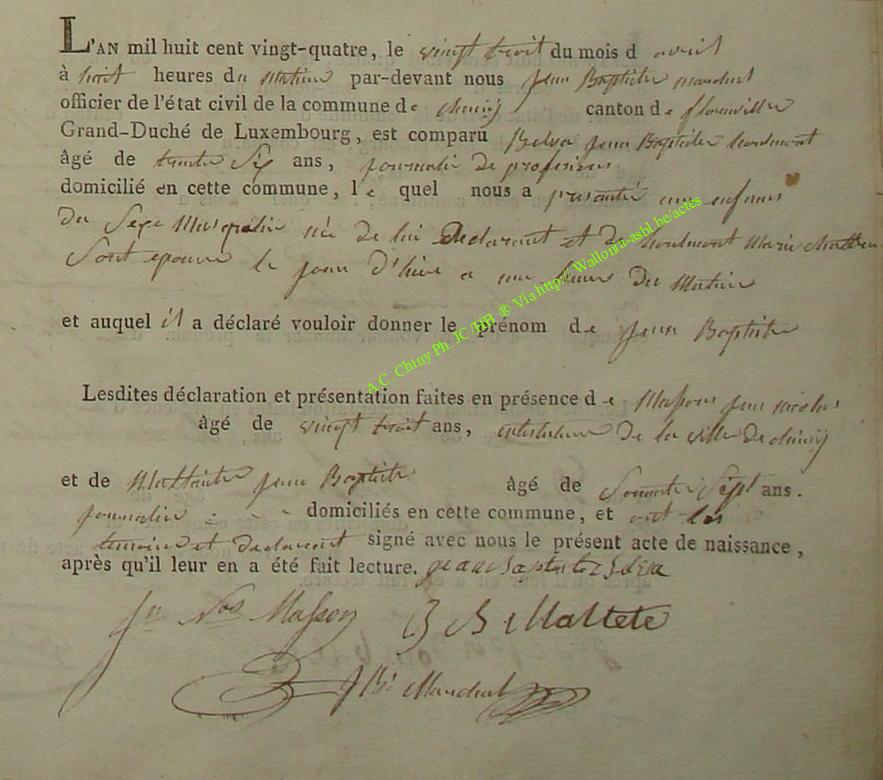 L'AN mil huit cent vingt-quatre, le vingt troit du mois d avril
à huit heures du Matin par-devant nous Jean Baptiste
officier de l'état civil de la commune de Chiny canton de florenville
Grand-Duché de Luxembourg, est comparu Jean Baptiste
âgé de trante Six ans, journalie de profession
domicilié en cette commune, le quel nous a presanté une enfans
du Sexe Masqulin née de lui declarant et de Marie
Sont epouse le jour d'hier a une heure du Matin
et auquel il a déclaré vouloir donner le prénom de Jean Baptiste
Lesdites déclaration et présentation faites en présence de Masson Jean nicolas
âgé de vingt troit ans, de la ville de chiny
et de Jean Baptiste âgé de Sept ans.
journalie domiciliés en cette commune, et ont les
temoins et declarant signé avec nous le présent acte de naissance,
après qu'il leur en a été fait lecture.
Jn Nas Masson J B Mattete
J Bt
A.C. Chiny Ph. JC /HB ® Via http:// Wallonia-asbl.be/actes